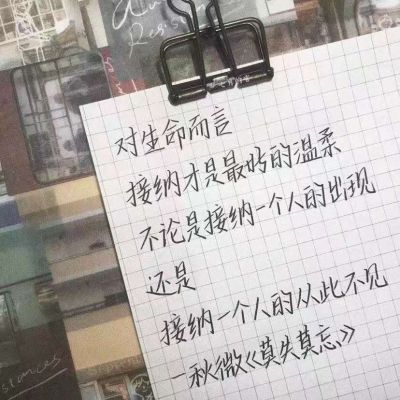 对生命而言
接纳才是最好的温柔
不论是接纳一个人的出现
还是
接纳一个人的从此不见
—秋微《莫失莫忘》
Resist
stances